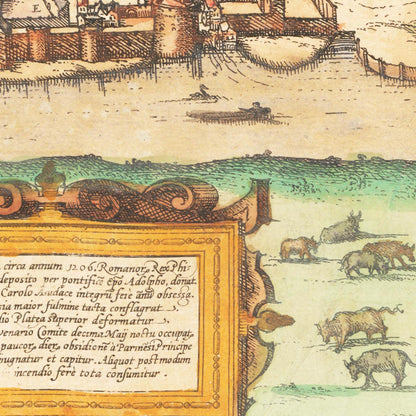 E
circa annum 1206. Romanor, Rex Phi-
deposito per pontificē epō Adolpho, donat
Carolo Audace integrū fere annū obsessa.
maior fulmine tacta conflagrat
Platea superior deformatur
Comite decima Maij noctu occupat,
paucor, dier, obsidionē à Parmēsi Principe
pugnatur et capitur. Aliquot post modum
incendio ferè tota consumitur.